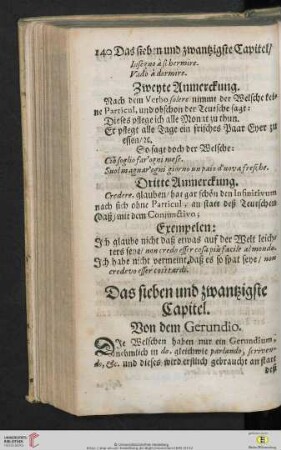 140 Das sieben und zwantzigste Capitel/
Vado à dormire.
Zweyte Anmerckung.
Nach dem Verbo solere nimmt der Welsche kei-
ne Particul, und obschon der Teutsche sagt:
Dieses pflege ich alle Monat zu thun.
Er pflegt alle Tage ein frisches Paar Eyer zu
essen/ &c.
So sagt doch der Welsche:
Ciò soglio far' ogni mese.
Suol magnar' ogni giorno un paio d'uova fresche.
Dritte Anmerckung.
Credere, glauben/ hat gar schön den Infinitivum
nach sich ohne Particul, an statt deß Teutschen
(daß) mit dem Conjunctivo;
Exempelen:
Ich glaube nicht daß etwas auf der Welt leich-
ters seye/ non credo esser cosa più facile al mondo.
Ich habe nicht vermeint/daß es so spat seye/ non
credevo esser così tardi.
Das sieben und zwantzigste
Capitel.
Von dem Gerundio.
Die Welschen haben nur ein Gerundium,
nehmlich in do, gleichwie parlando, scriven-
do, &c. und dieses wird erstlich gebraucht an statt
deß